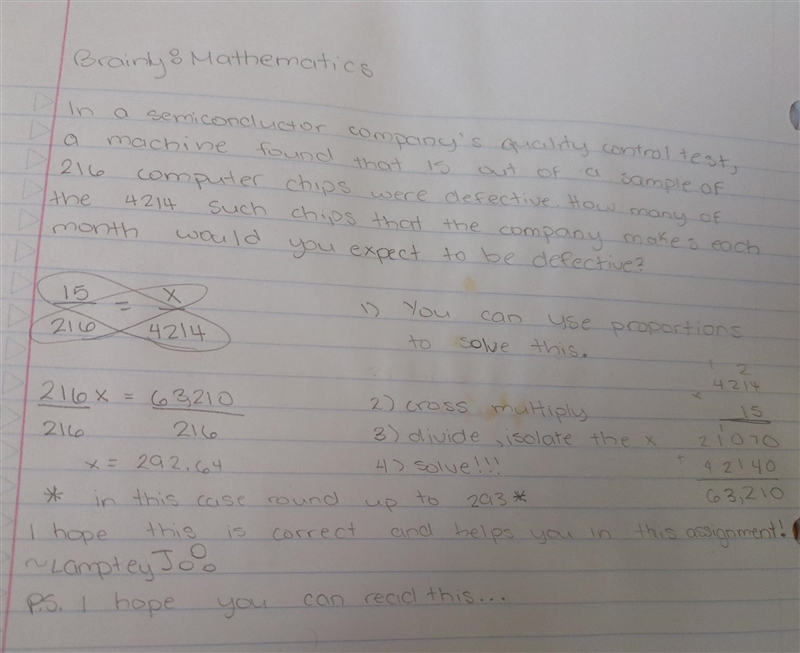 Brainly: Mathematics
In a semiconductor company's quality control test,
a machine found that 15 out of a sample of
216 computer chips were defective. How many of
the 4214 such chips that the company makes each
month would you expect to be defective?
15/216 = x/4214
1) You can use proportions
to solve this.
216x/216 = 63,210/216
2) cross multiply
3) divide, isolate the x
x = 292.64
4) solve!!!
1 2
4214
x 15
1
21070
+ 42140
63,210
* in this case round up to 293 *
I hope this is correct and helps you in this assignment!
~Lamptey J
P.S. I hope you can read this...